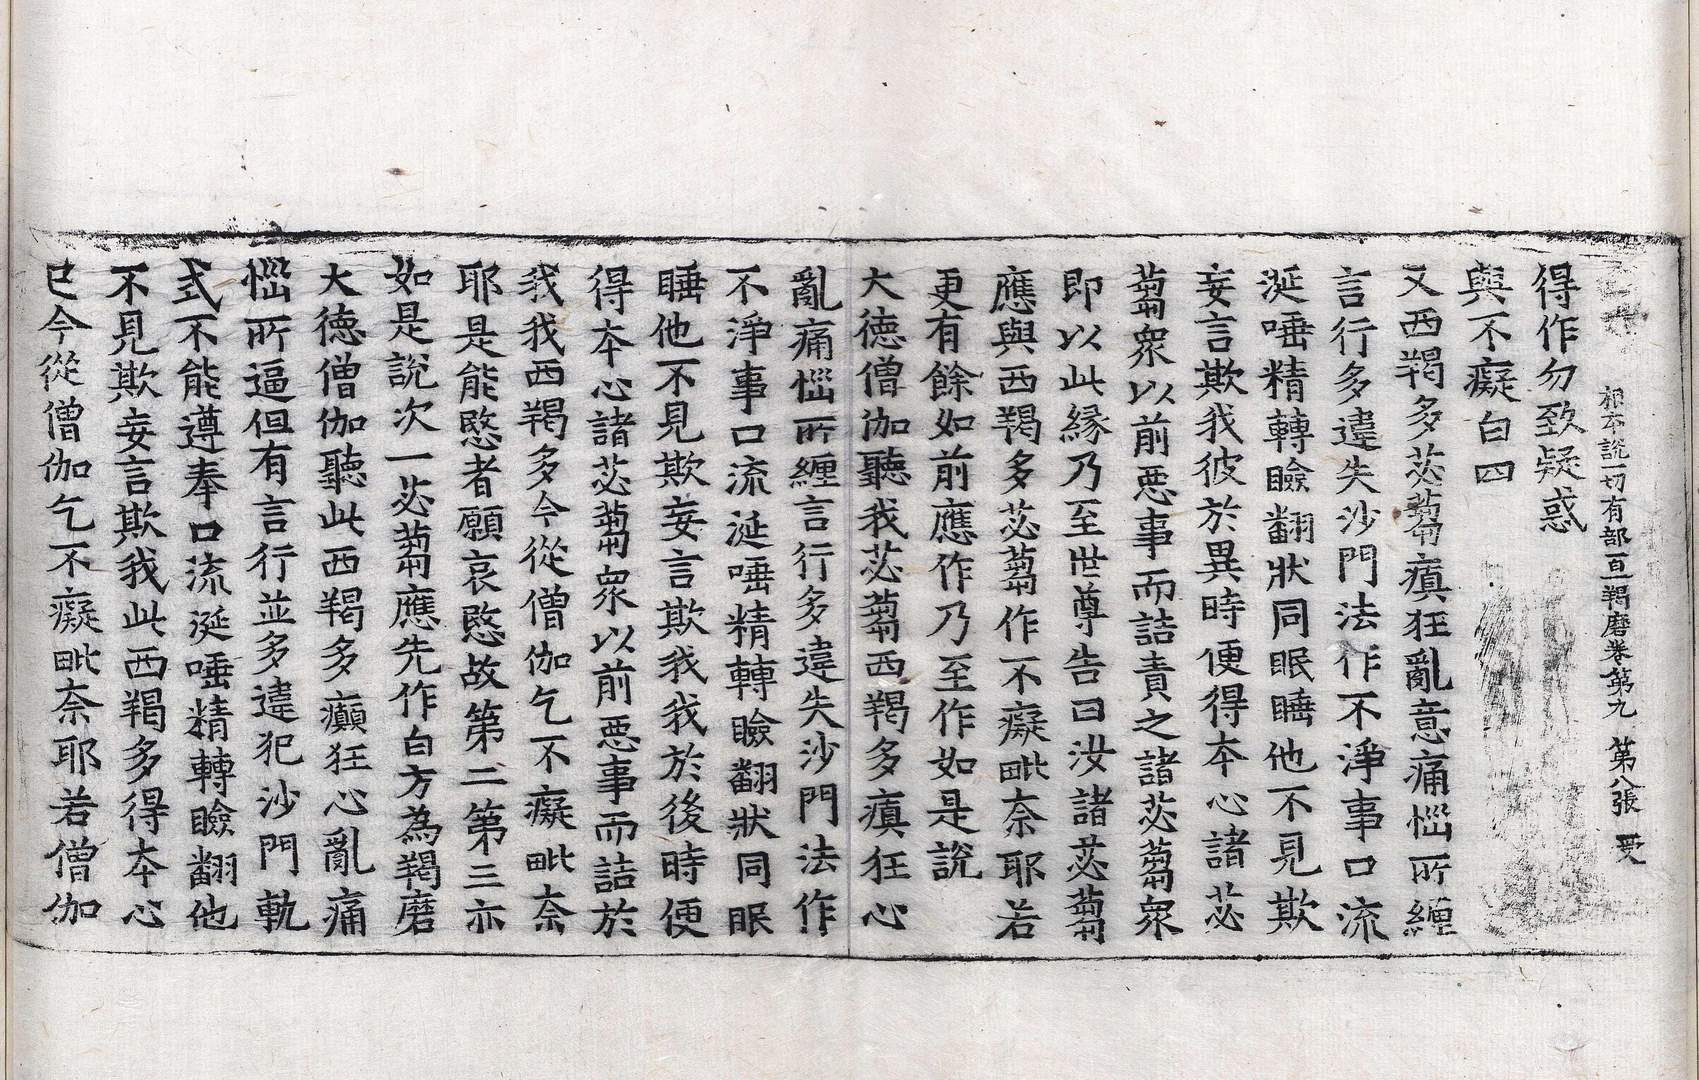 根本說一切有部百一羯磨卷第九 第八張 受
得作勿致疑惑
與不癡白四
又西羯多苾蒭瘨狂亂意痛惱所纏
言行多違失沙門法作不淨事口流
涎唾精轉瞼翻狀同眠睡他不見欺
妄言欺我彼於異時便得本心諸苾
蒭衆以前惡事而詰責之諸苾蒭衆
即以此緣乃至世尊告曰汝諸苾蒭
應與西羯多苾蒭作不癡毗奈耶若
更有餘如前應作乃至作如是說
大德僧伽聽我苾蒭西羯多瘨狂心
亂痛惱所纏言行多違失沙門法作
不淨事口流涎唾精轉瞼翻狀同眠
睡他不見欺妄言欺我我於後時便
得本心諸苾蒭衆以前惡事而詰於
我我西羯多今從僧伽乞不癡毗奈
耶是能愍者願哀愍故第二第三亦
如是說次一苾蒭應先作白方為羯磨
大德僧伽聽此西羯多癲狂心亂痛
惱所逼但有言行並多違犯沙門軌
式不能遵奉口流涎唾精轉瞼翻他
不見欺妄言欺我此西羯多得本心
已今從僧伽乞不癡毗奈耶若僧伽